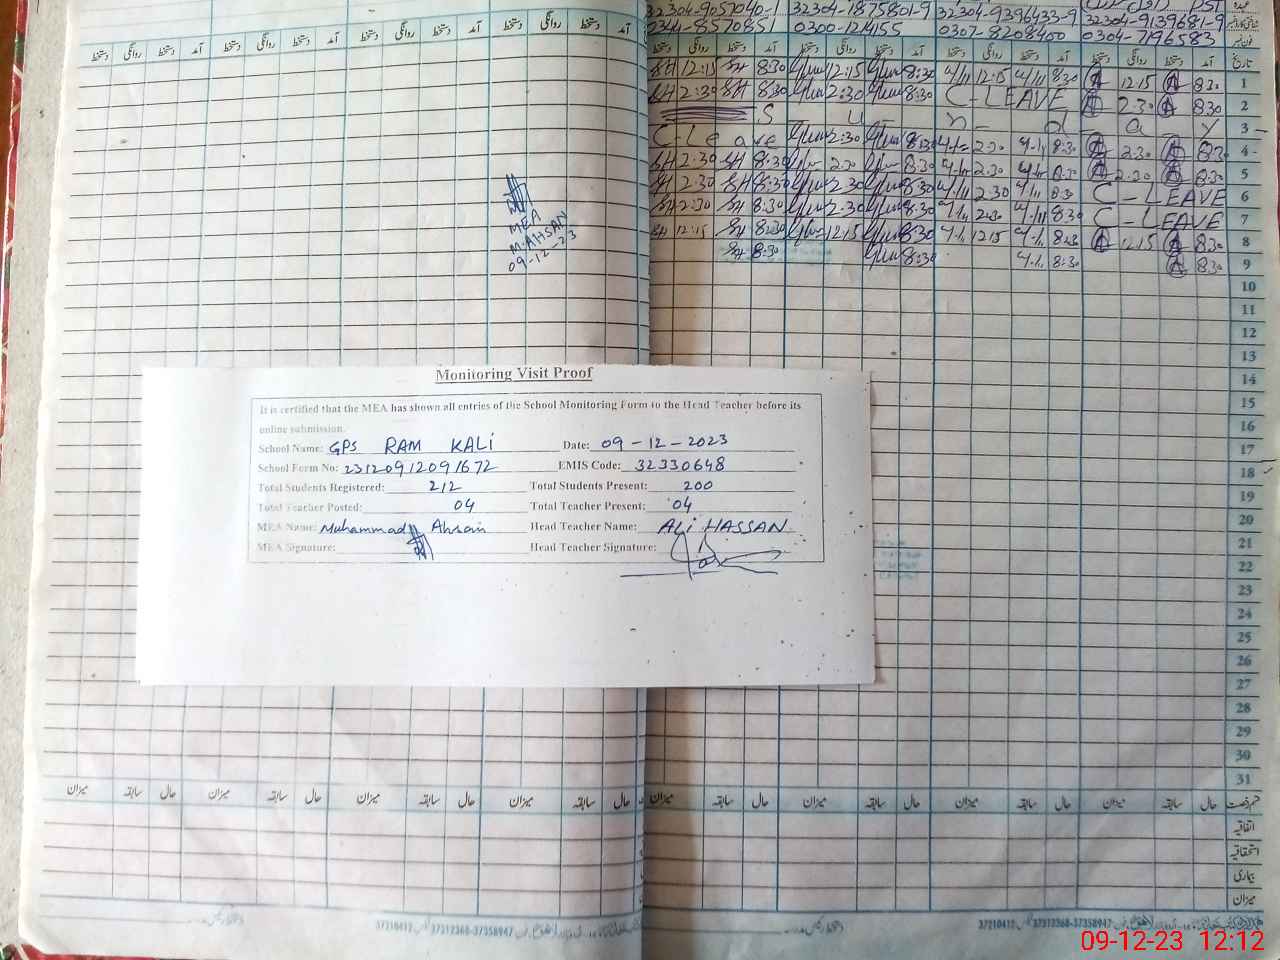 32304-9057040-1 32304-1875801-9 32304-9396433-9 32304-9139681-9
0341-8557085 0300-1214155 0307-8208400 0304-7196583
دستخط روانگی دستخط آمد دستخط روانگی دستخط آمد دستخط روانگی دستخط آمد دستخط روانگی دستخط آمد تاریخ
12:15 8:30 12:15 8:30 12:15 8:30 12:15 8:30 1
2:30 8:30 2:30 8:30 C-LEAVE 2:30 8:30 2
S u n - d - a - y 3
C-Leave 2:30 8:30 2:30 8:30 2:30 8:30 4
2:30 8:30 2:30 8:30 2:30 8:30 2:30 8:30 5
2:30 8:30 2:30 8:30 2:30 8:30 C-LEAVE 6
2:30 8:30 2:30 8:30 2:30 8:30 C-LEAVE 7
12:15 8:30 12:15 8:30 12:15 8:30 12:15 8:30 8
8:30 8:30 8:30 8:30 9
MEA
M.AHSAN
09-12-23
10
11
12
13
14
15
16
17
18
19
20
21
22
23
24
25
26
27
28
29
30
31
Monitoring Visit Proof
It is certified that the MEA has shown all entries of the School Monitoring Form to the Head Teacher before its
online submission.
School Name: GPS RAM KALI Date: 09-12-2023
School Form No: 23120912091672 EMIS Code: 32330648
Total Students Registered: 212 Total Students Present: 200
Total Teacher Posted: 04 Total Teacher Present: 04
MEA Name: Muhammad Ahsan Head Teacher Name: ALI HASSAN
MEA Signature: Head Teacher Signature:
میزان سابقہ حال میزان سابقہ حال میزان سابقہ حال میزان سابقہ حال
اتفاقیہ
استحقاقیہ
بیماری
میزان
37210412 37312368-37358947
09-12-23 12:12